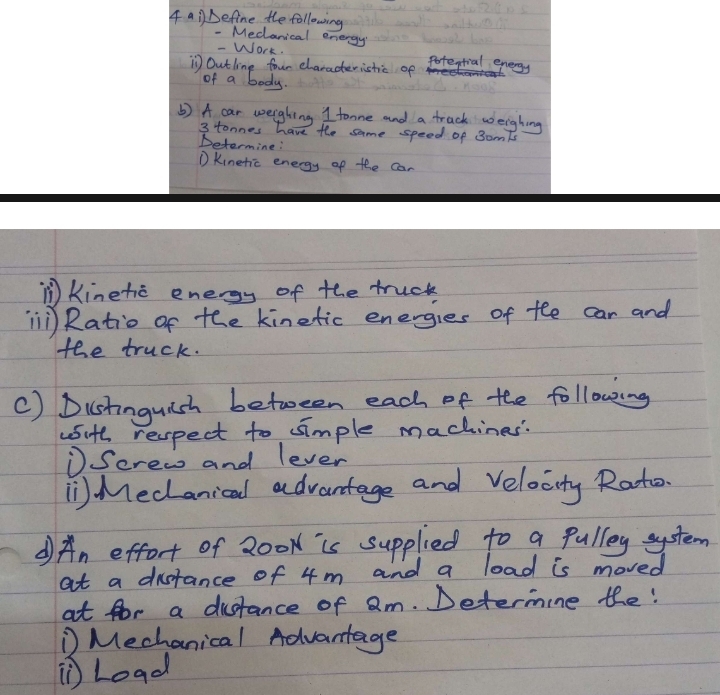 4 a i) Define the following
- Mechanical energy
- Work.
ii) Outline four characteristic of potential energy
of a body.
b) A car weighing 1 tonne and a track weighing
3 tonnes have the same speed of 30m/s
Determine:
i) Kinetic energy of the car
ii) Kinetic energy of the truck
iii) Ratio of the kinetic energies of the car and
the truck.
c) Distinguish between each of the following
with respect to simple machines:
i) Screw and lever
ii) Mechanical advantage and Velocity Ratio.
d) An effort of 200N is supplied to a Pulley system
at a distance of 4m and a load is moved
at for a distance of 2m. Determine the:
i) Mechanical Advantage
ii) Load